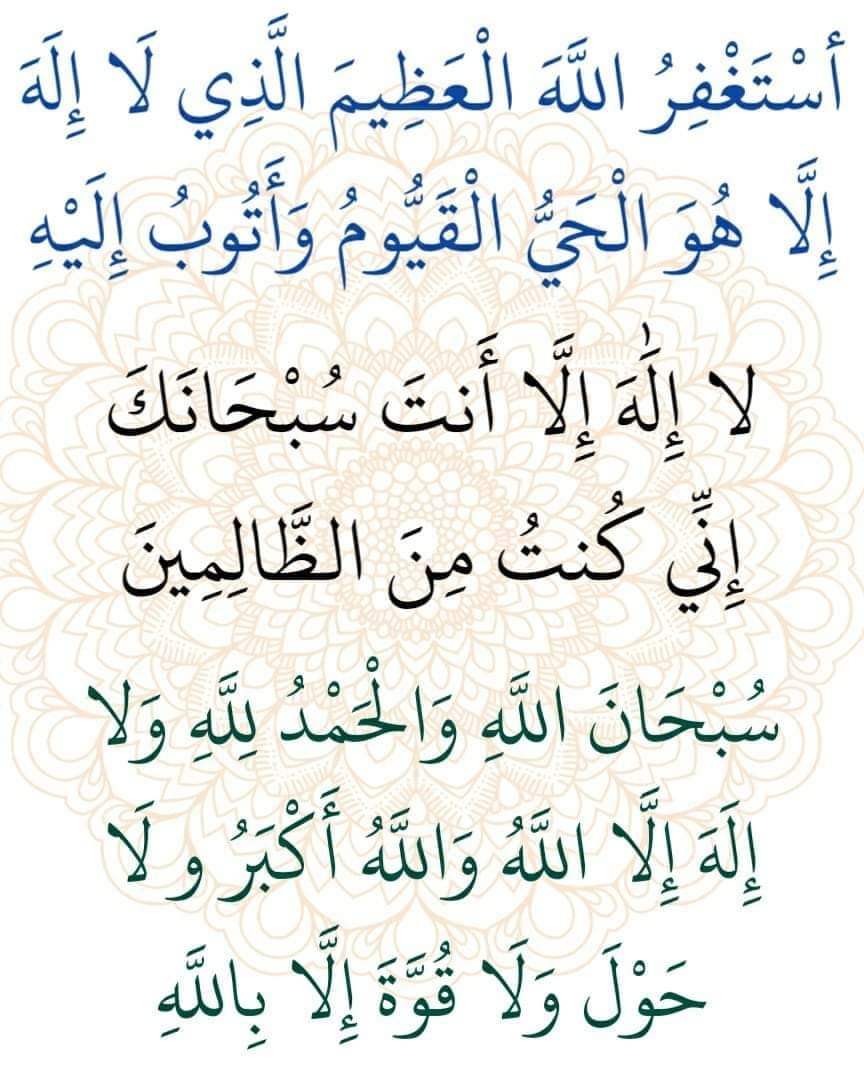 أَسْتَغْفِرُ اللَّهَ الْعَظِيمَ الَّذِي لَا إِلَهَ
إِلَّا هُوَ الْحَيُّ الْقَيُّومُ وَأَتُوبُ إِلَيْهِ
لا إِلَٰهَ إِلَّا أَنتَ سُبْحَانَكَ
إِنِّي كُنتُ مِنَ الظَّالِمِينَ
سُبْحَانَ اللَّهِ وَالْحَمْدُ لِلَّهِ وَلا
إِلَهَ إِلَّا اللَّهُ وَاللَّهُ أَكْبَرُ و لَا
حَوْلَ وَلَا قُوَّةَ إِلَّا بِاللَّهِ